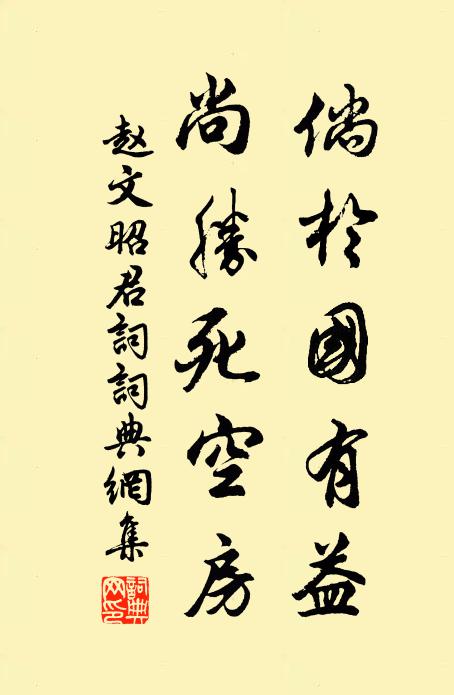 倘於國有益
尚勝死空房
赵文昭君詞詞典網集
詞典網印